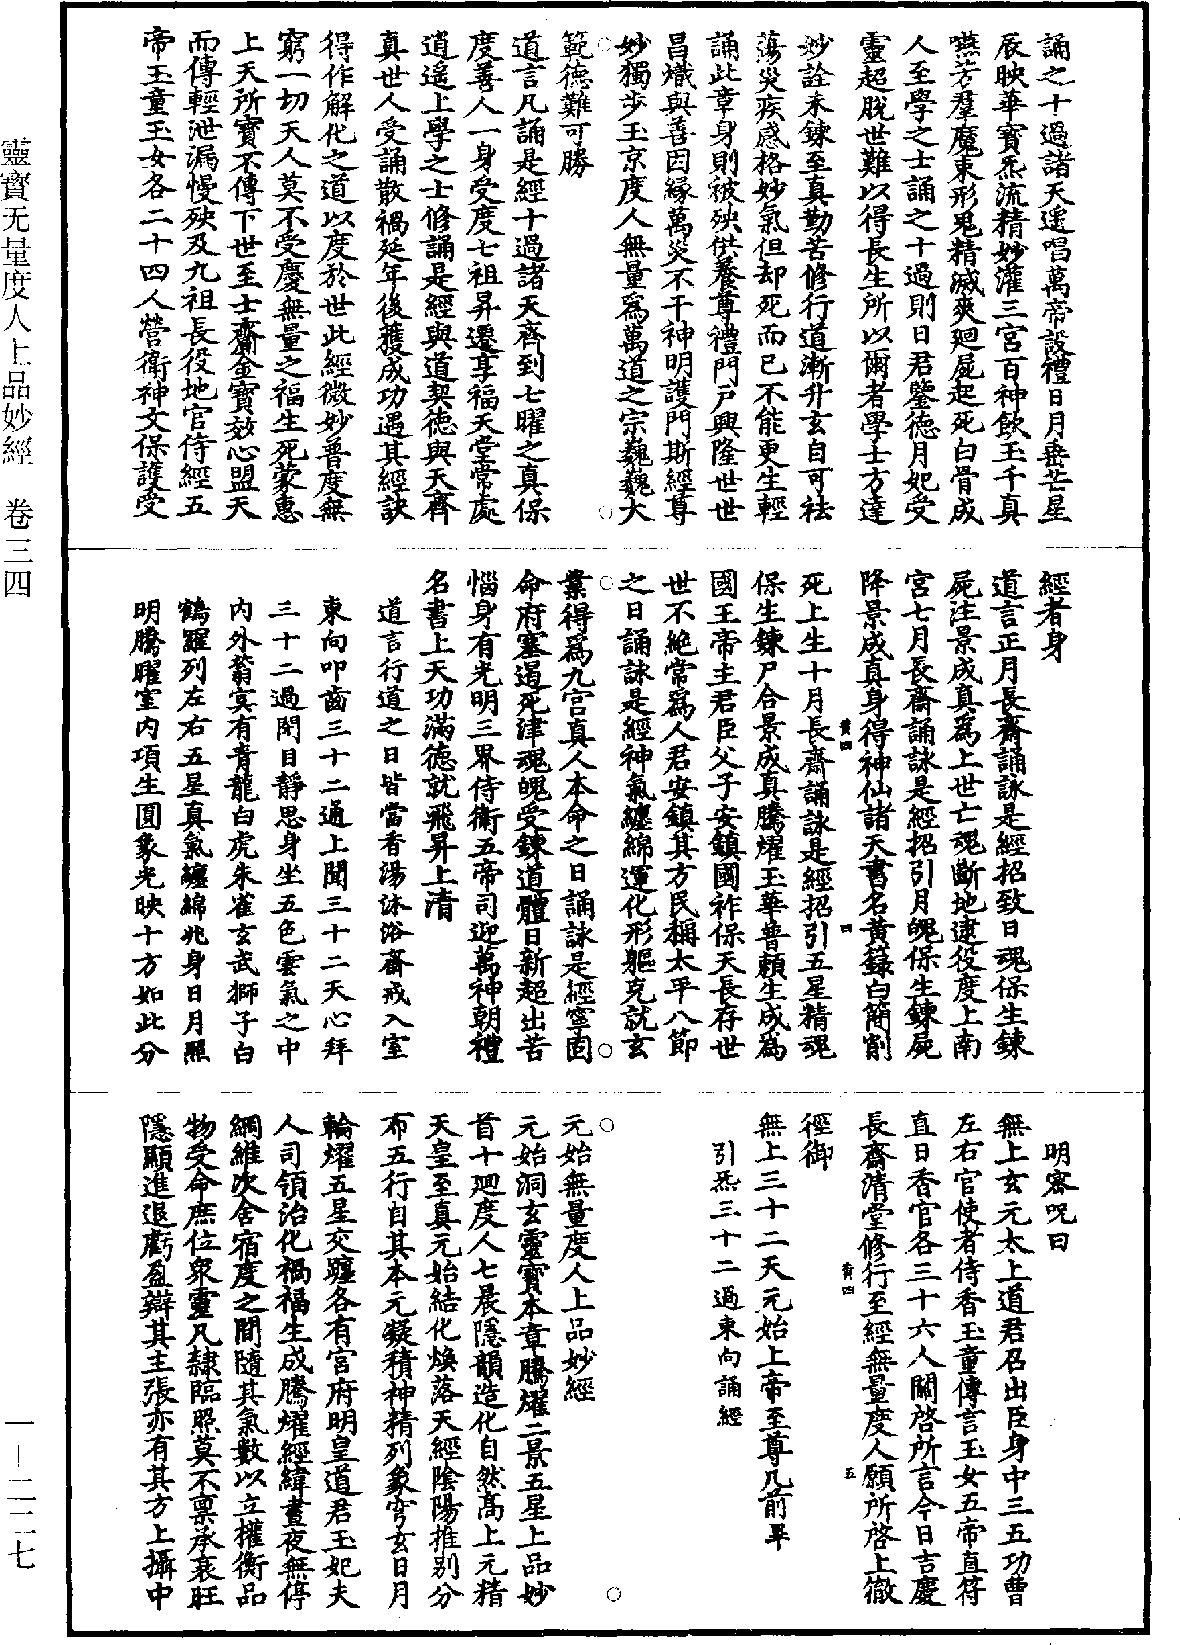 誦之十過諸天遙唱萬帝設禮日月垂芒星
辰映華寶炁流精妙灌三宮百神飲玉千真
嚥芳羣魔束形鬼精滅爽廻屍起死白骨成
人至學之士誦之十過則日君鑒德月妃受
靈超脫世難以得長生所以爾者學士方達
妙詮未鍊至真勤苦修行道漸升玄自可祛
蕩災疾感格妙氣但却死而已不能更生輕
誦此章身則被殃供養尊禮門戶興隆世世
昌熾與善因緣萬災不干神明護門斯經尊
妙獨步玉京度人無量爲萬道之宗巍巍大
範德難可勝
道言凡誦是經十過諸天齊到七曜之真保
度善人一身受度七祖昇遷享福天堂常處
逍遥上學之士修誦是經與道契德與天齊
真世人受誦散禍延年後獲成功遇其經訣
得作解化之道以度於世此經微妙普度無
窮一切天人莫不受慶無量之福生死蒙惠
上天所寶不傳下世至士齎金寶效心盟天
而傳輕泄漏慢殃及九祖長役地官侍經五
帝玉童玉女各二十四人營衛神文保護受
經者身
道言正月長齋誦詠是經招致日魂保生鍊
屍注景成真爲上世亡魂斷地逮役度上南
宮七月長齋誦詠是經招引月魄保生鍊屍
降景成真身得神仙諸天書名黄籙白簡削
死上生十月長齋誦詠是經招引五星精魂
保生鍊尸合景成真騰耀玉華普賴生成爲
國王帝主君臣父子安鎮國祚保天長存世
世不絶常爲人君安鎮其方民稱太平八節
之日誦詠是經神氣纏綿運化形軀克就玄
業得爲九宫真人本命之日誦詠是經寧固
命府塞遏死津魂魄受鍊道體日新超出苦
惱身有光明三界侍衞五帝司迎萬神朝禮
名書上天功滿德就飛昇上清
道言行道之日皆當香湯沐浴齋戒入室
東向叩齒三十二通上聞三十二天心拜
三十二過閉目靜思身坐五色雲氣之中
内外蓊㝠有青龍白虎朱雀玄武獅子白
鶴羅列左右五星真氣纏綿兆身日月照
明騰曜室内項生圓象光映十方如此分
明密呪曰
無上玄元太上道君召出臣身中三五功曹
左右官使者侍香玉童傳言玉女五帝直符
直日香官各三十六人關啓所言今日吉慶
長齋清堂修行至經無量度人願所啓上徹
徑御
無上三十二天元始上帝至尊几前畢
引炁三十二過東向誦經
元始無量度人上品妙經
元始洞玄靈寶本章騰耀二景五星上品妙
首十廻度人七晨隱韻造化自然高上元精
天皇至真元始結化焕落天經陰陽推别分
布五行自其本元凝積神精列象穹玄日月
輪燿五星交躔各有宮府明皇道君玉妃夫
人司領治化禍福生成騰燿經緯晝夜無停
綱維次舍宿度之間隨其氣數以立權衡品
物受命庶位衆靈凡隸臨照莫不禀承衰旺
隱顯進退虧盈辯其主張亦有其方上攝中
靈寶无量度人上品妙經　卷三四
一—二二七